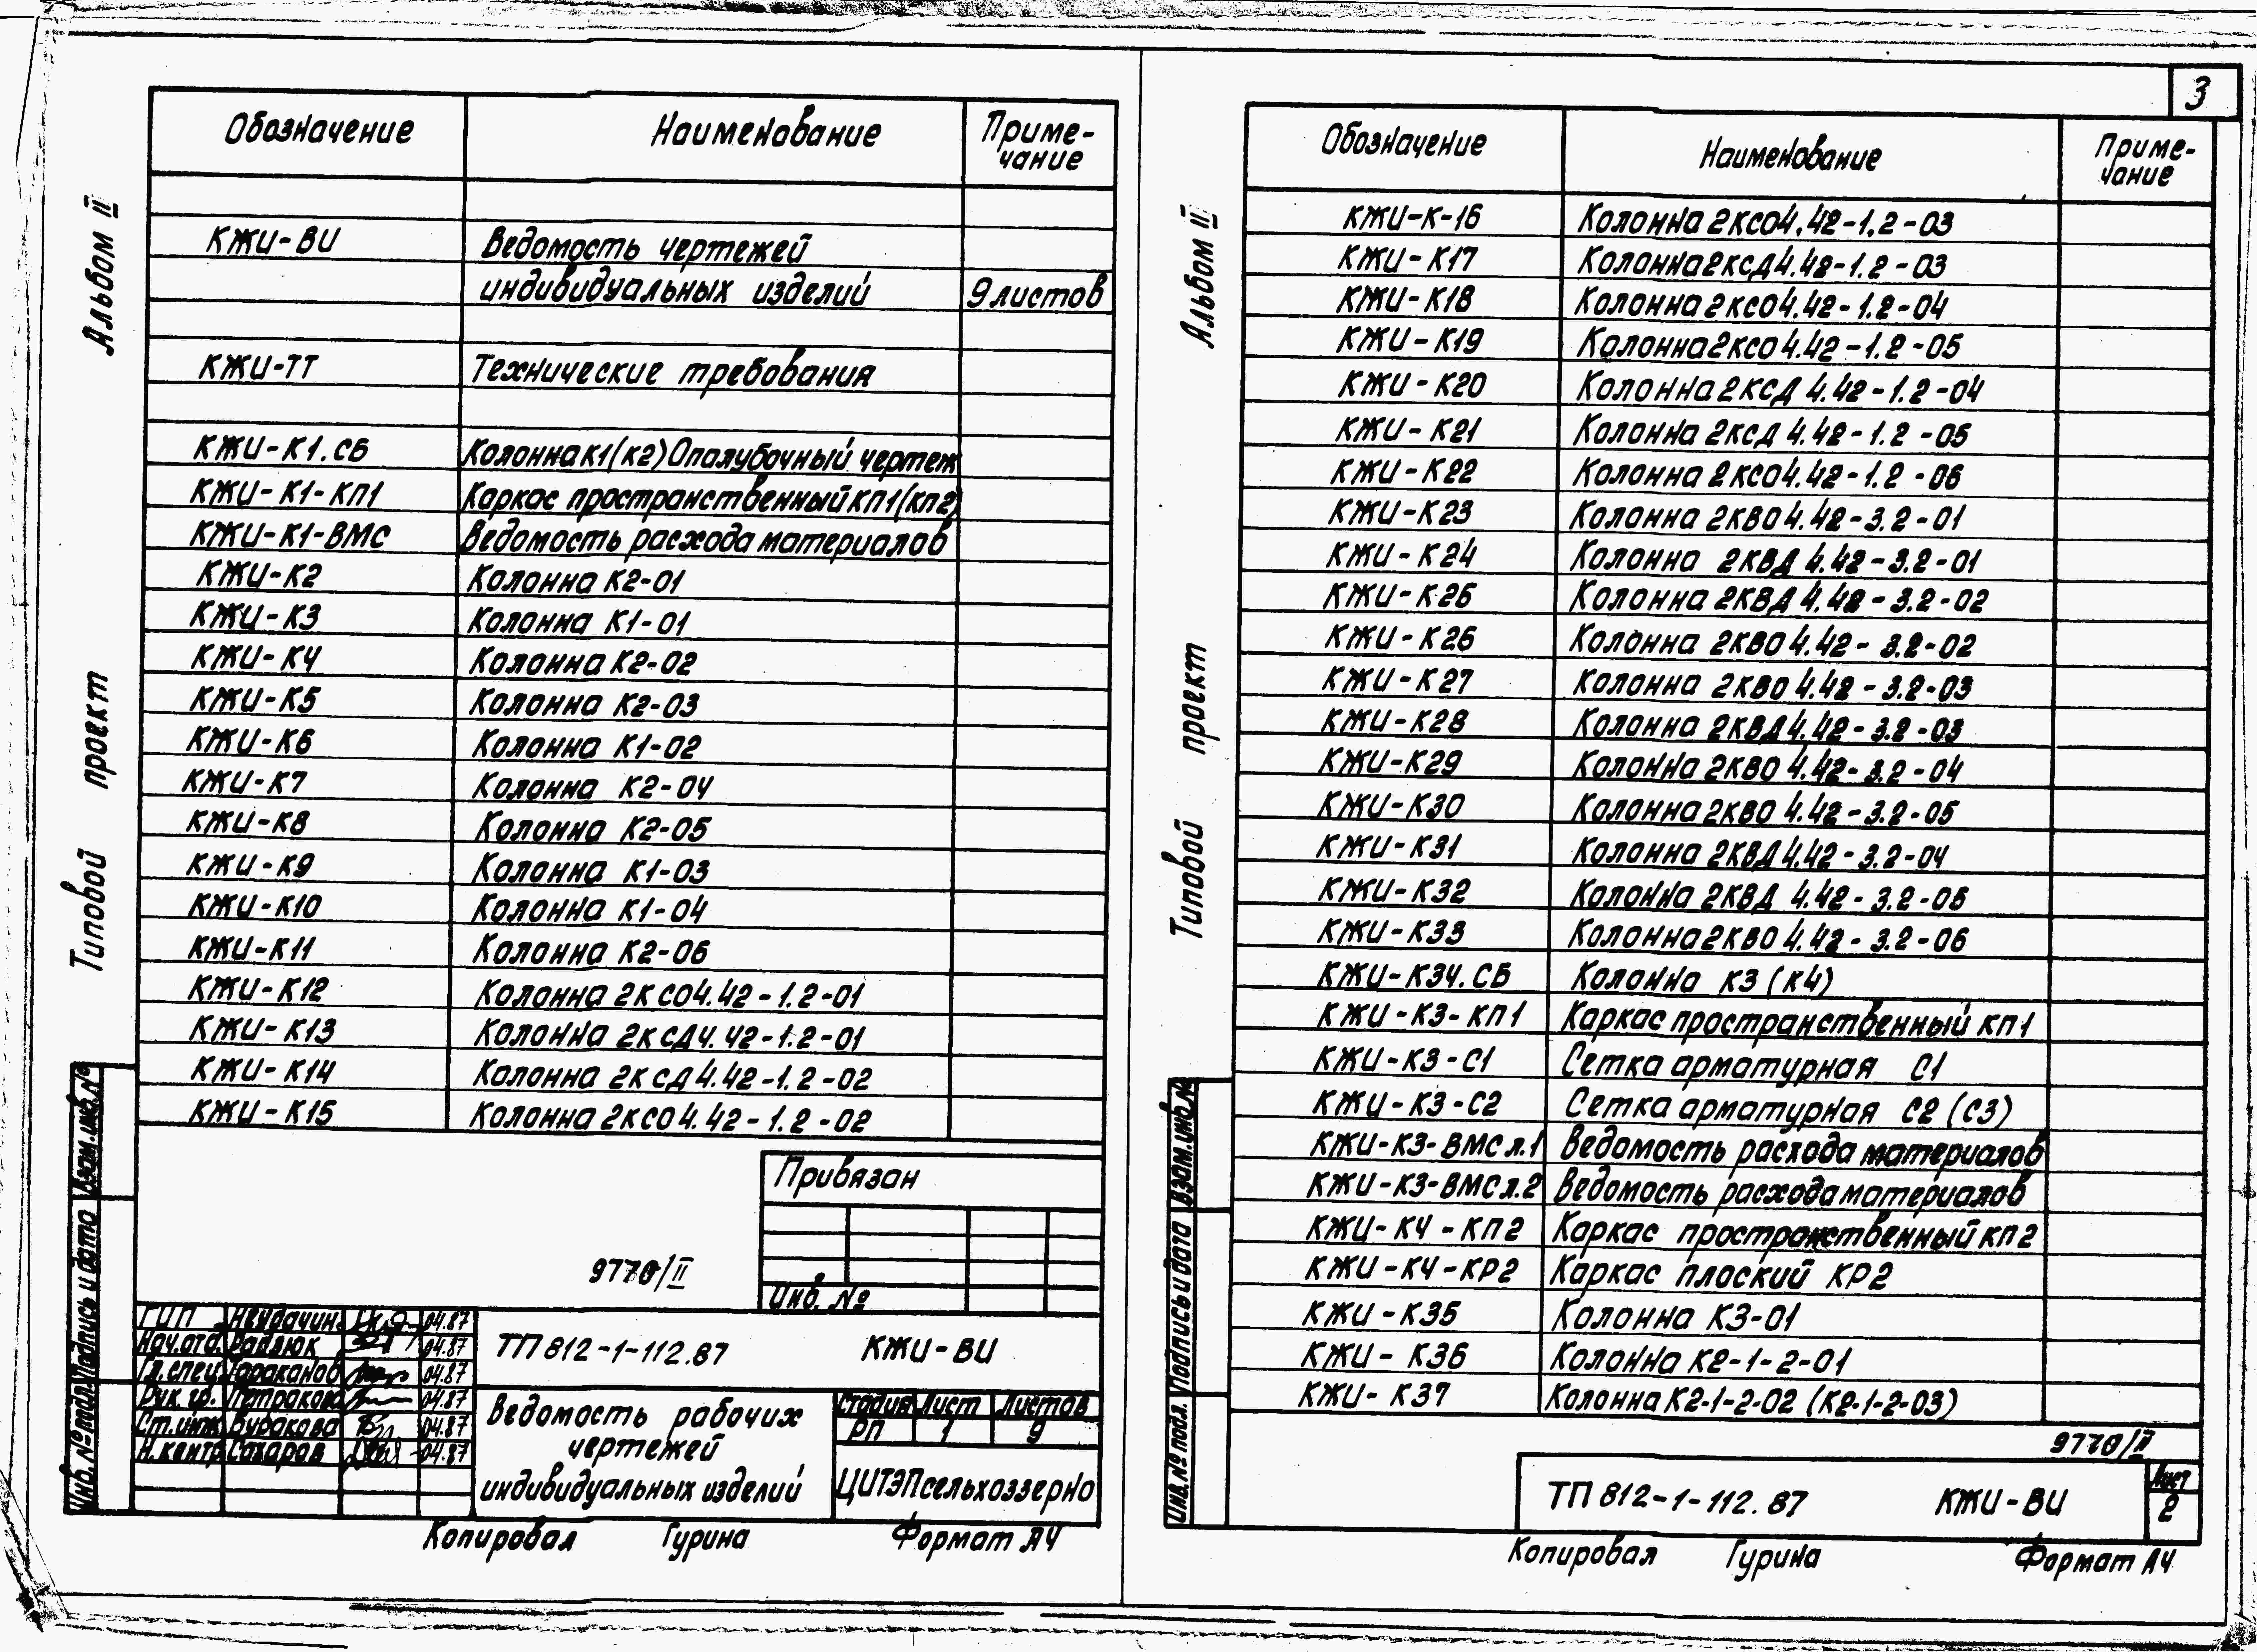 3
Альбом II
Типовой проект
Обозначение Наименование Приме-
чание
КЖИ-ВИ Ведомость чертежей
индивидуальных изделий 9 листов
КЖИ-ТТ Технические требования
КЖИ-К1.СБ Колонна К1(К2) Опалубочный чертеж
КЖИ-К1-КП1 Каркас пространственный КП1(КП2)
КЖИ-К1-ВМС Ведомость расхода материалов
КЖИ-К2 Колонна К2-01
КЖИ-К3 Колонна К1-01
КЖИ-К4 Колонна К2-02
КЖИ-К5 Колонна К2-03
КЖИ-К6 Колонна К1-02
КЖИ-К7 Колонна К2-04
КЖИ-К8 Колонна К2-05
КЖИ-К9 Колонна К1-03
КЖИ-К10 Колонна К1-04
КЖИ-К11 Колонна К2-06
КЖИ-К12 Колонна 2КСО4.42-1.2-01
КЖИ-К13 Колонна 2КСД4.42-1.2-01
КЖИ-К14 Колонна 2КСД4.42-1.2-02
КЖИ-К15 Колонна 2КСО4.42-1.2-02
Привязан
Инв. №
9770/II
Взам.инв.№
Подпись и дата
Инв.№ подл.
ГИП Неудачин 04.87
Нач.отд. Радлюк 04.87
Гл.спец. Тараканов 04.87
Рук. гр. Петракова 04.87
Ст.инж. Буракова 04.87
Н.контр. Сахаров 04.87
ТП 812-1-112.87 КЖИ-ВИ
Ведомость рабочих
чертежей
индивидуальных изделий
Стадия Лист Листов
РП 1 9
ЦИТЭПсельхоззерно
Копировал Гурина Формат А4
Альбом II
Типовой проект
Обозначение Наименование Приме-
чание
КЖИ-К-16 Колонна 2КСО4.42-1.2-03
КЖИ-К17 Колонна 2КСД4.42-1.2-03
КЖИ-К18 Колонна 2КСО4.42-1.2-04
КЖИ-К19 Колонна 2КСО4.42-1.2-05
КЖИ-К20 Колонна 2КСД4.42-1.2-04
КЖИ-К21 Колонна 2КСД4.42-1.2-05
КЖИ-К22 Колонна 2КСО4.42-1.2-06
КЖИ-К23 Колонна 2КВО4.42-3.2-01
КЖИ-К24 Колонна 2КВД4.42-3.2-01
КЖИ-К26 Колонна 2КВД4.42-3.2-02
КЖИ-К26 Колонна 2КВО4.42-3.2-02
КЖИ-К27 Колонна 2КВО4.42-3.2-03
КЖИ-К28 Колонна 2КВД4.42-3.2-03
КЖИ-К29 Колонна 2КВО4.42-3.2-04
КЖИ-К30 Колонна 2КВО4.42-3.2-05
КЖИ-К31 Колонна 2КВД4.42-3.2-04
КЖИ-К32 Колонна 2КВД4.42-3.2-05
КЖИ-К33 Колонна 2КВО4.42-3.2-06
КЖИ-К34.СБ Колонна К3(К4)
КЖИ-К3-КП1 Каркас пространственный КП1
КЖИ-К3-С1 Сетка арматурная С1
КЖИ-К3-С2 Сетка арматурная С2(С3)
КЖИ-К3-ВМС л.1 Ведомость расхода материалов
КЖИ-К3-ВМС л.2 Ведомость расхода материалов
КЖИ-К4-КП2 Каркас пространственный КП2
КЖИ-К4-КР2 Каркас плоский КР2
КЖИ-К35 Колонна К3-01
КЖИ-К36 Колонна К2-1-2-01
КЖИ-К37 Колонна К2-1-2-02 (К2-1-2-03)
9770/II
Взам.инв.№
Подпись и дата
Инв.№ подл.
ТП 812-1-112.87 КЖИ-ВИ
Лист
2
Копировал Гурина Формат А4